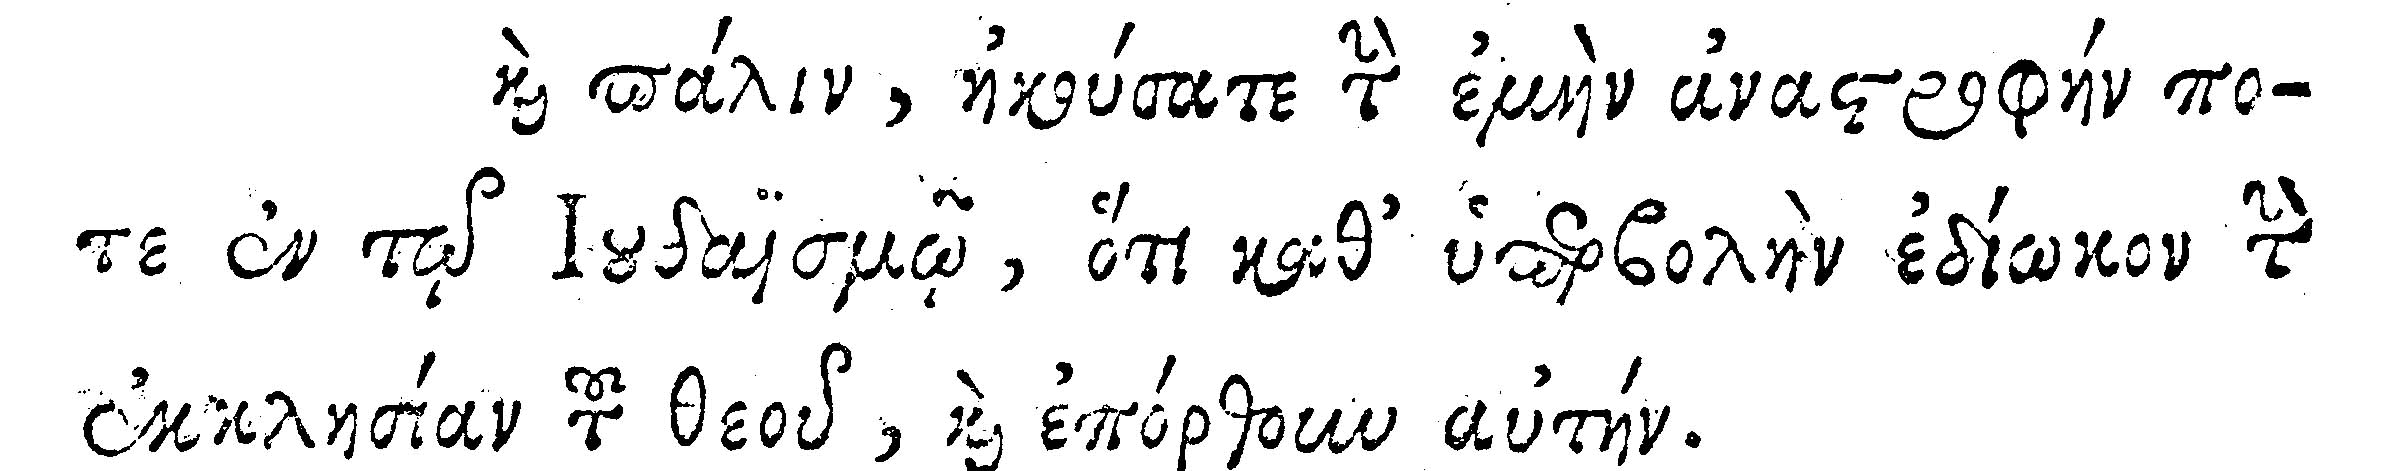 καὶ πάλιν, ἠκούσατε τὴν ἐμὴν ἀναστροφήν πο-
τε ἐν τῷ Ἰουδαϊσμῷ, ὅτι καθ' ὑπερβολὴν ἐδίωκον τὴν
ἐκκλησίαν τοῦ θεοῦ, καὶ ἐπόρθουν αὐτήν.